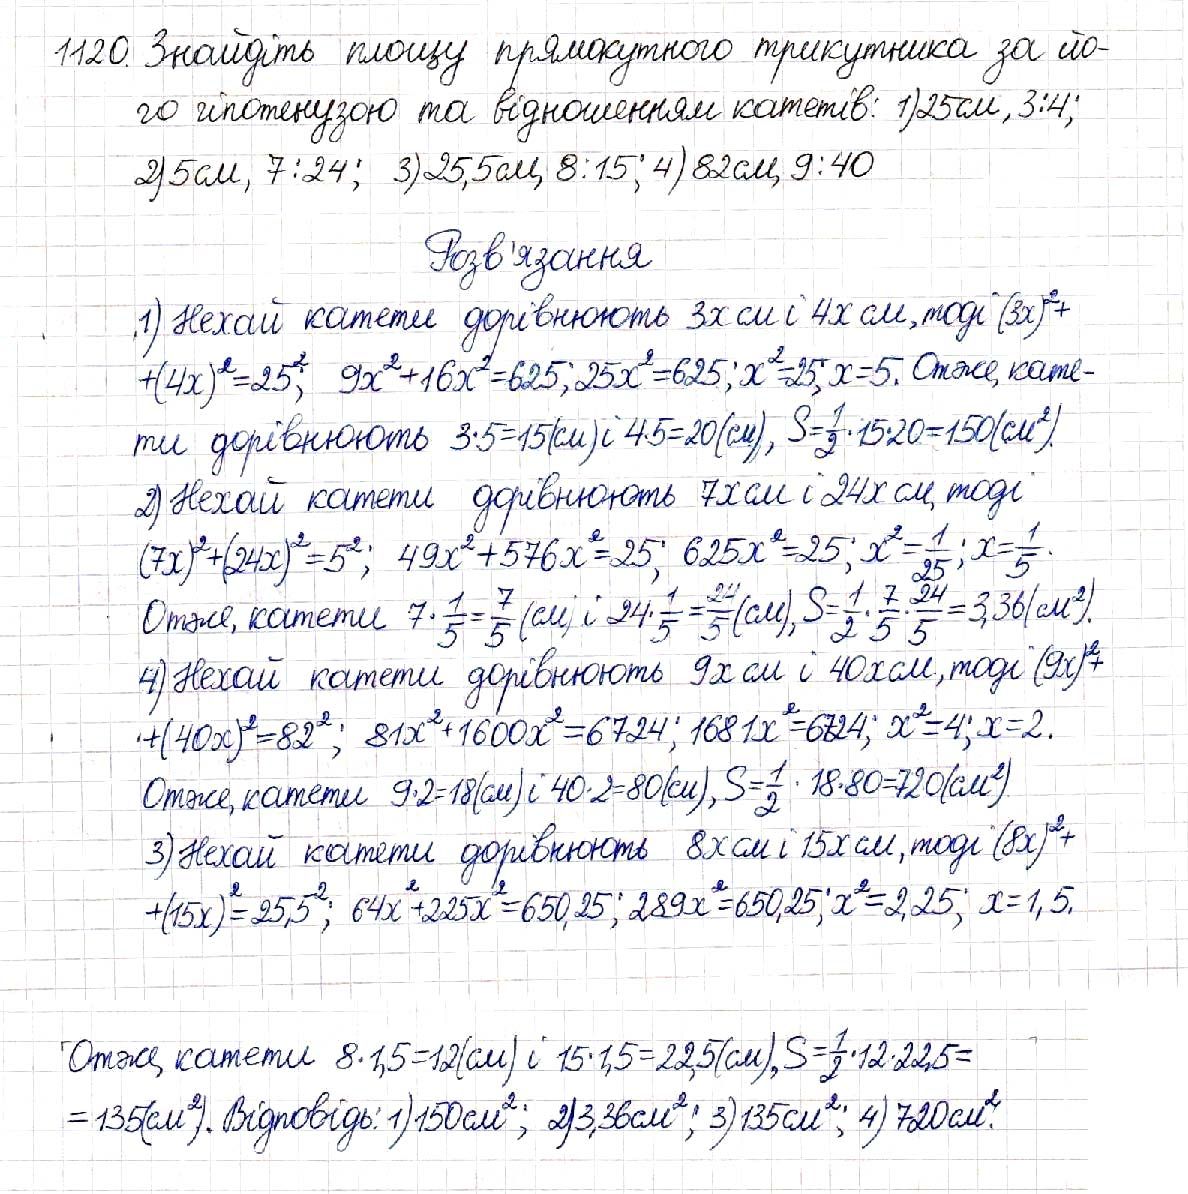 1120. Знайдіть площу прямокутного трикутника за йо-
го гіпотенузою та відношенням катетів: 1) 25 см, 3:4;
2) 5 см, 7:24; 3) 25,5 см, 8:15; 4) 82 см, 9:40
Розв'язання
1) Нехай катети дорівнюють 3x см і 4x см, тоді (3x)²+
+(4x)²=25²; 9x²+16x²=625; 25x²=625; x²=25; x=5. Отже, кате-
ти дорівнюють 3·5=15(см) і 4·5=20(см), S=1/2·15·20=150(см²).
2) Нехай катети дорівнюють 7x см і 24x см, тоді
(7x)²+(24x)²=5²; 49x²+576x²=25; 625x²=25; x²=1/25; x=1/5.
Отже, катети 7·1/5=7/5(см) і 24·1/5=24/5(см), S=1/2·7/5·24/5=3,36(см²).
4) Нехай катети дорівнюють 9x см і 40x см, тоді (9x)²+
+(40x)²=82²; 81x²+1600x²=6724; 1681x²=6724; x²=4; x=2.
Отже, катети 9·2=18(см) і 40·2=80(см), S=1/2·18·80=720(см²)
3) Нехай катети дорівнюють 8x см і 15x см, тоді (8x)²+
+(15x)²=25,5²; 64x²+225x²=650,25; 289x²=650,25; x²=2,25; x=1,5.
Отже, катети 8·1,5=12(см) і 15·1,5=22,5(см), S=1/2·12·22,5=
=135(см²). Відповідь: 1) 150 см²; 2) 3,36 см²; 3) 135 см²; 4) 720 см².